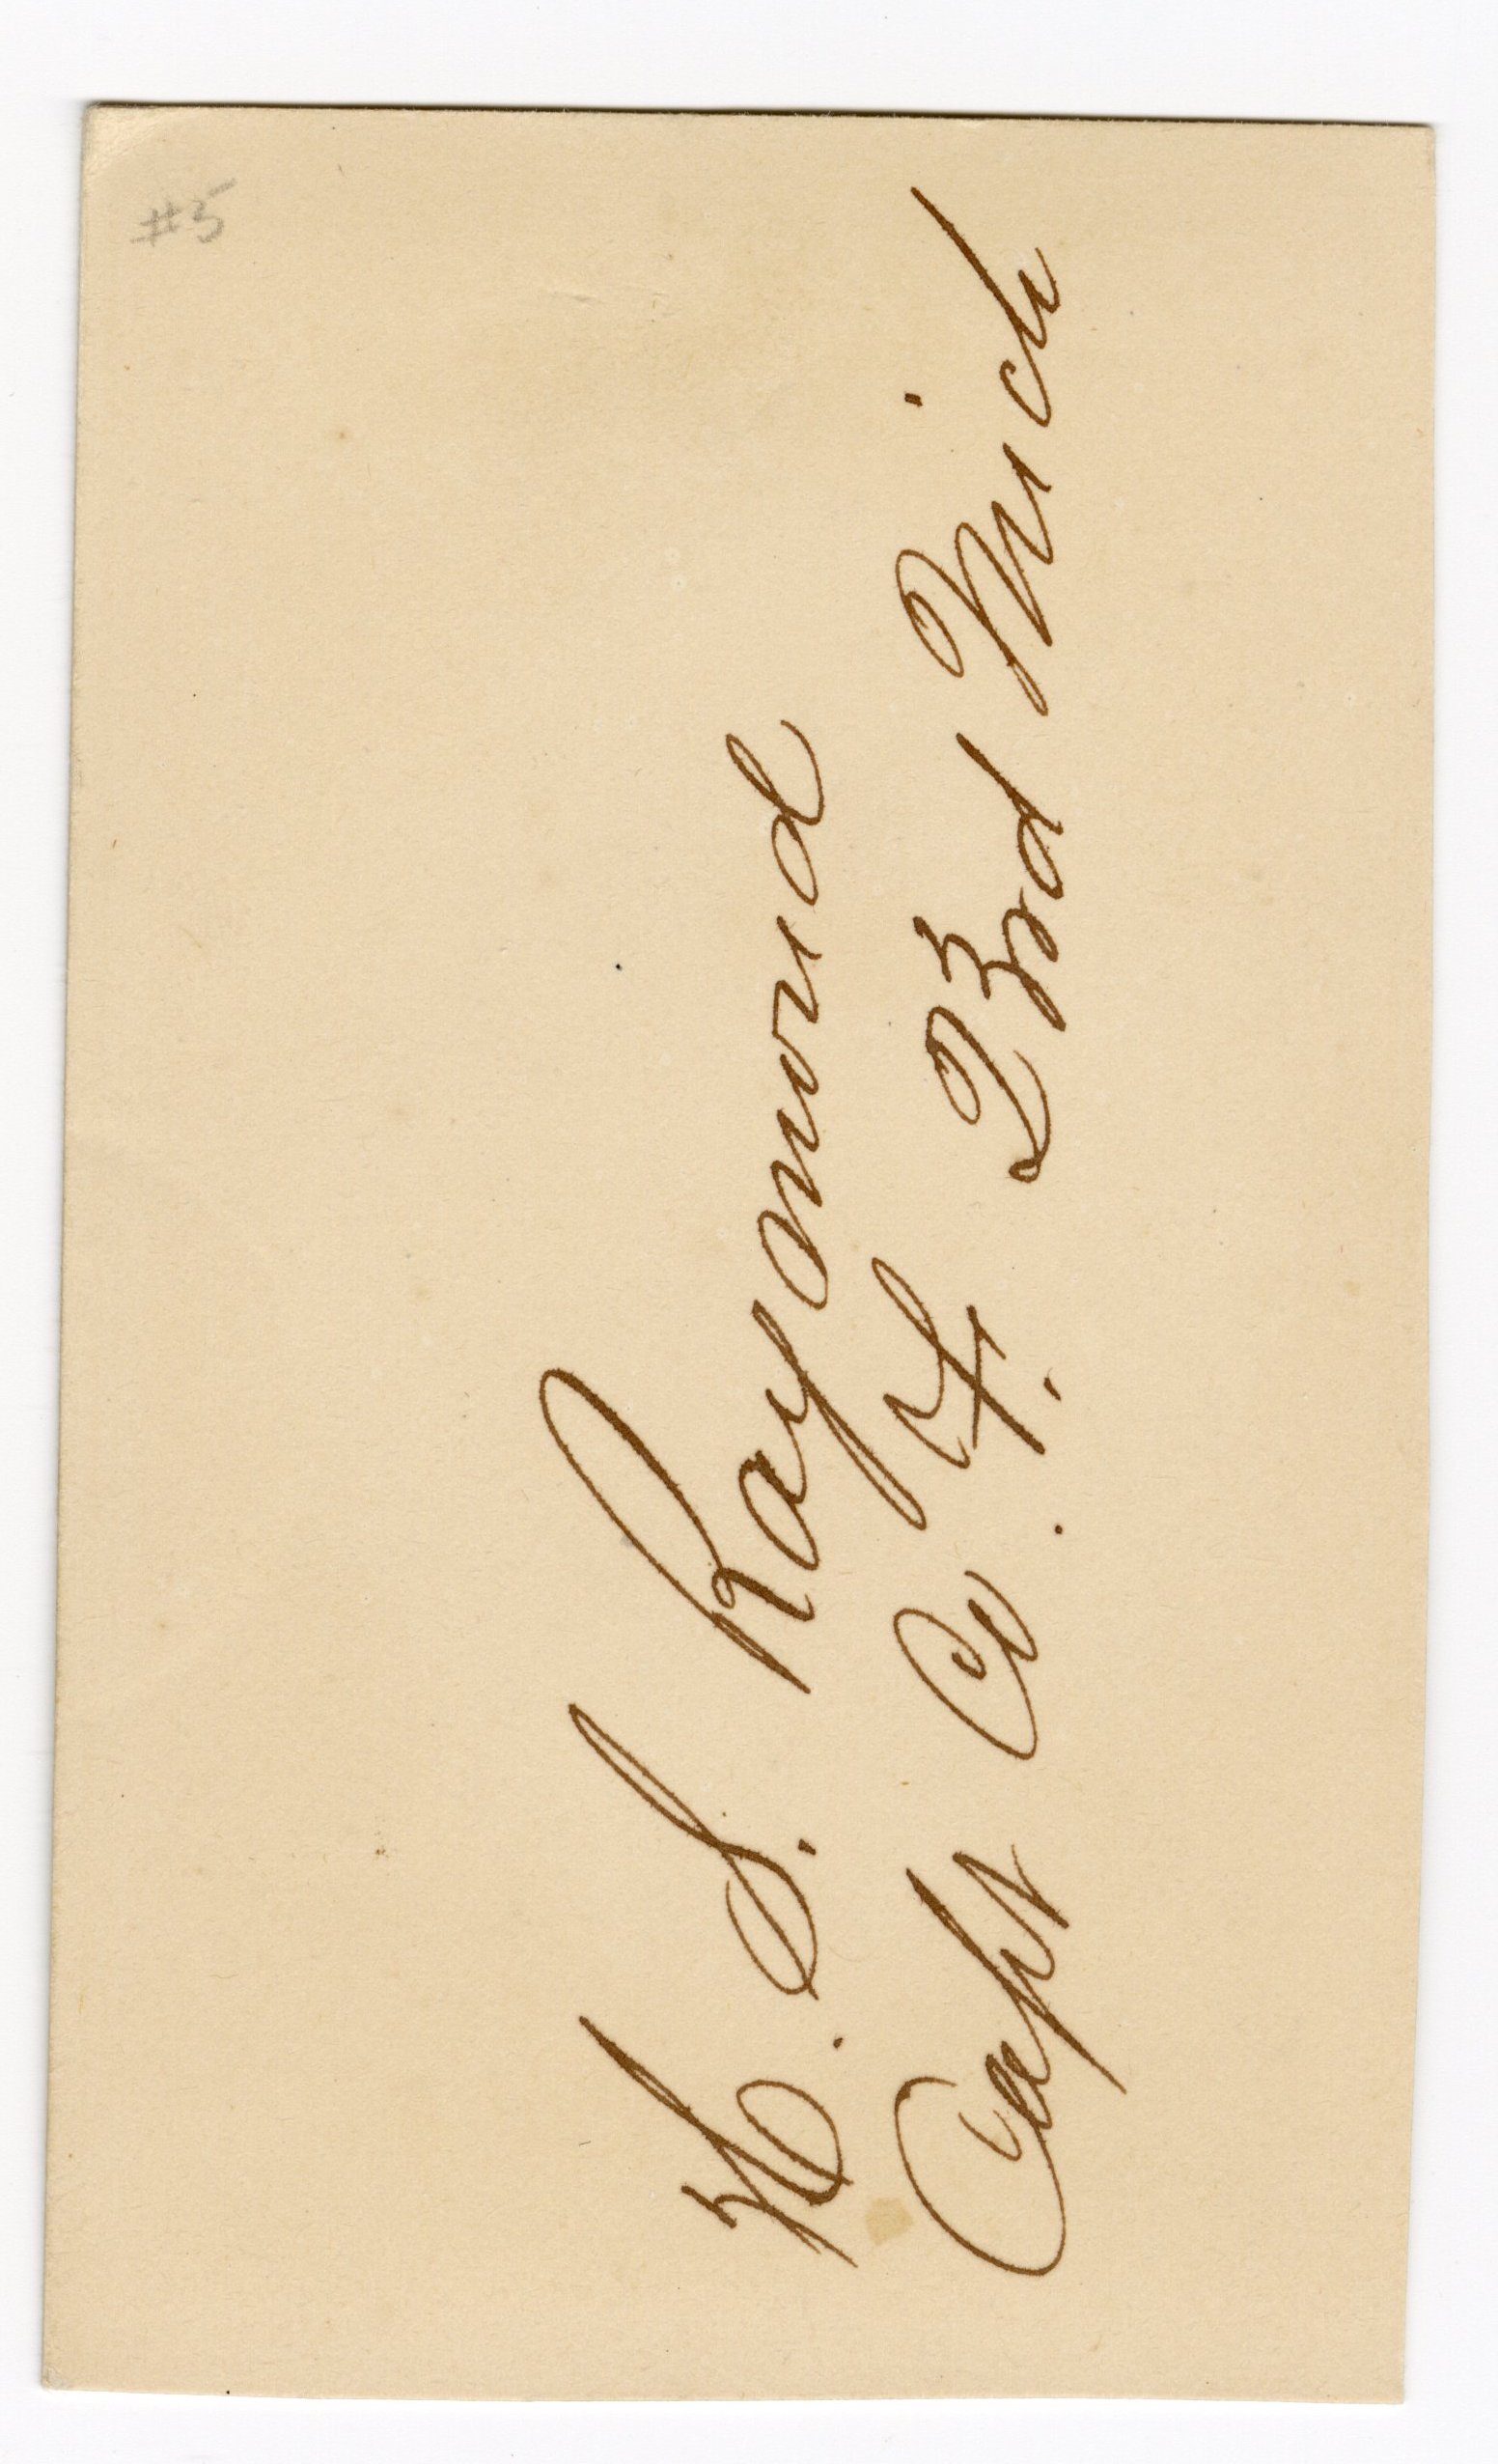 #5
H. S. Raymond
Capt Co. F. 23rd Mich